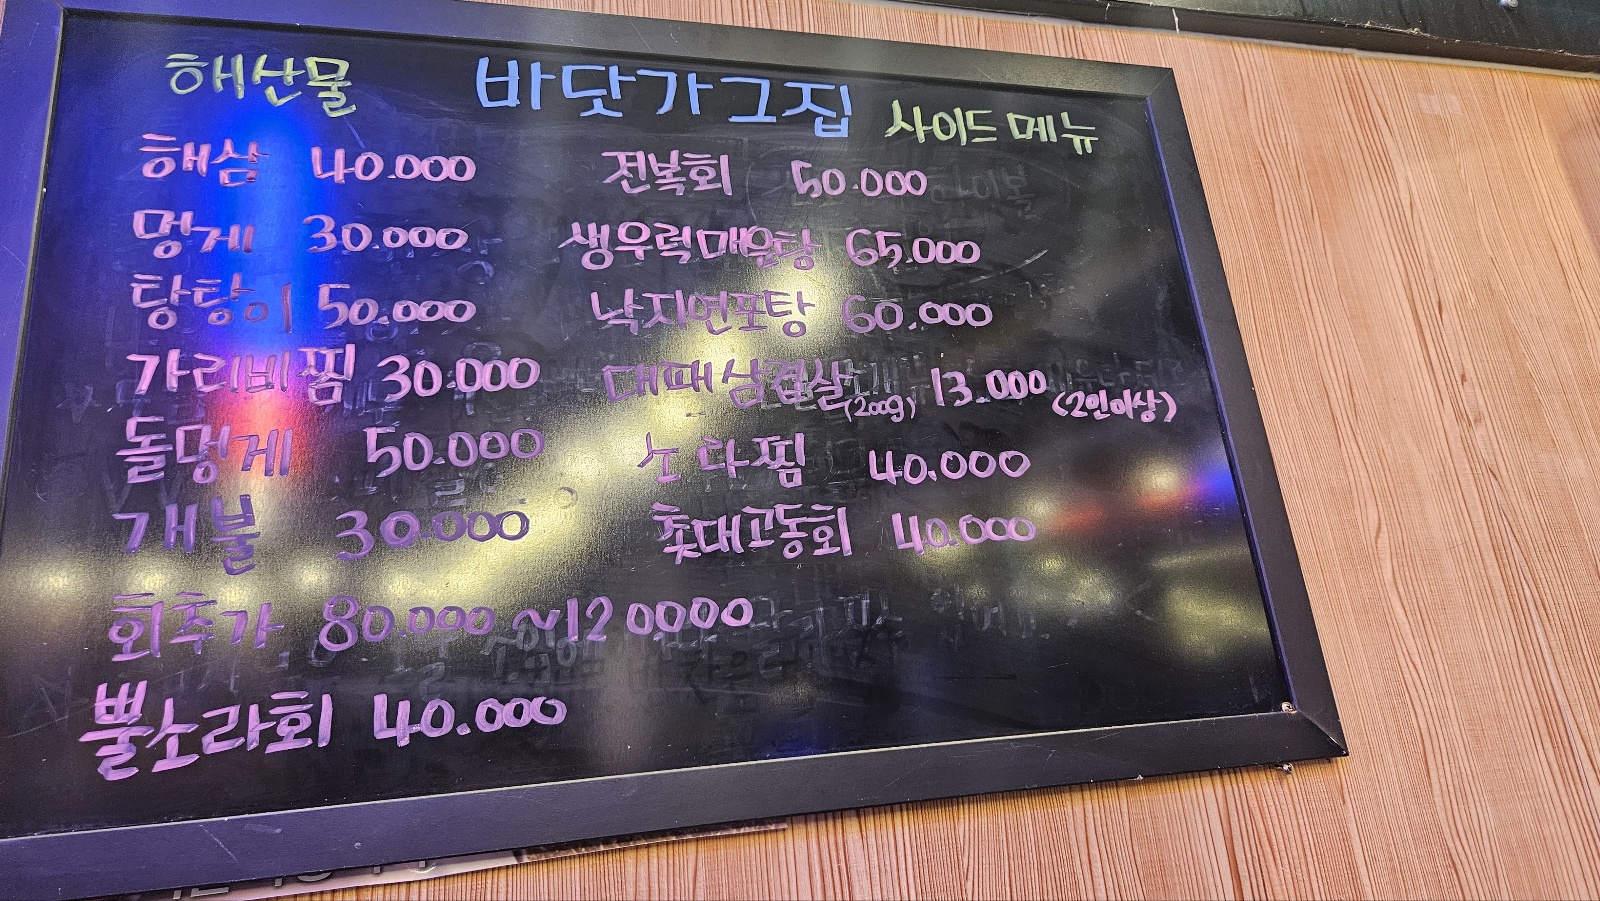 바닷가그집
해산물
해삼 40.000
멍게 30.000
탕탕이 50.000
가리비찜 30.000
돌멍게 50.000
개불 30.000
회추가 80.000~120.000
뿔소라회 40.000
사이드 메뉴
전복회 50.000
생우럭매운탕 65.000
낙지연포탕 60.000
대패삼겹살(200g) 13.000 (2인이상)
소라찜 40.000
촛대고동회 40.000